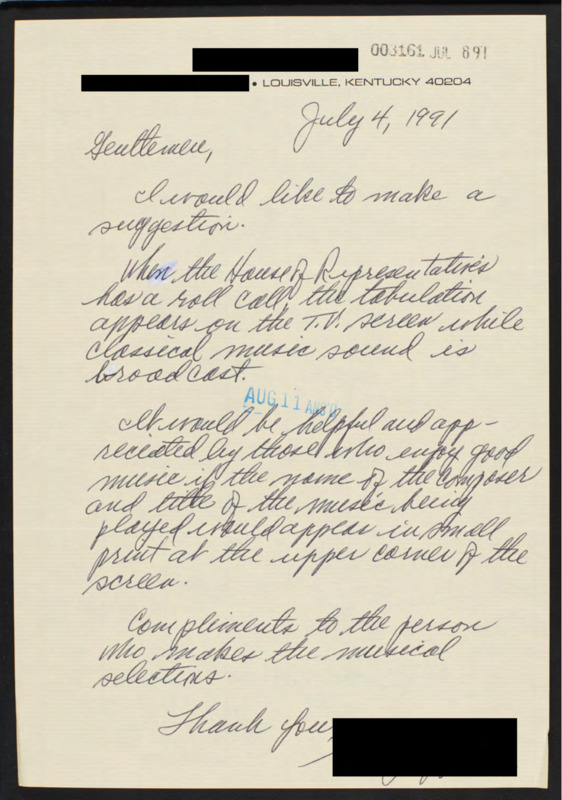 003161 JUL 891
• LOUISVILLE, KENTUCKY 40204
July 4, 1991
Gentlemen,
I would like to make a
suggestion.
When the House of Representatives
has a roll call, the tabulation
appears on the T.V. screen while
classical music sound is
broadcast.
AUG 11
It would be helpful and app-
reciated by those who enjoy good
music if the name of the composer
and title of the music being
played would appear in small
print at the upper corner of the
screen.
Compliments to the person
who makes the musical
selections.
Thank you,